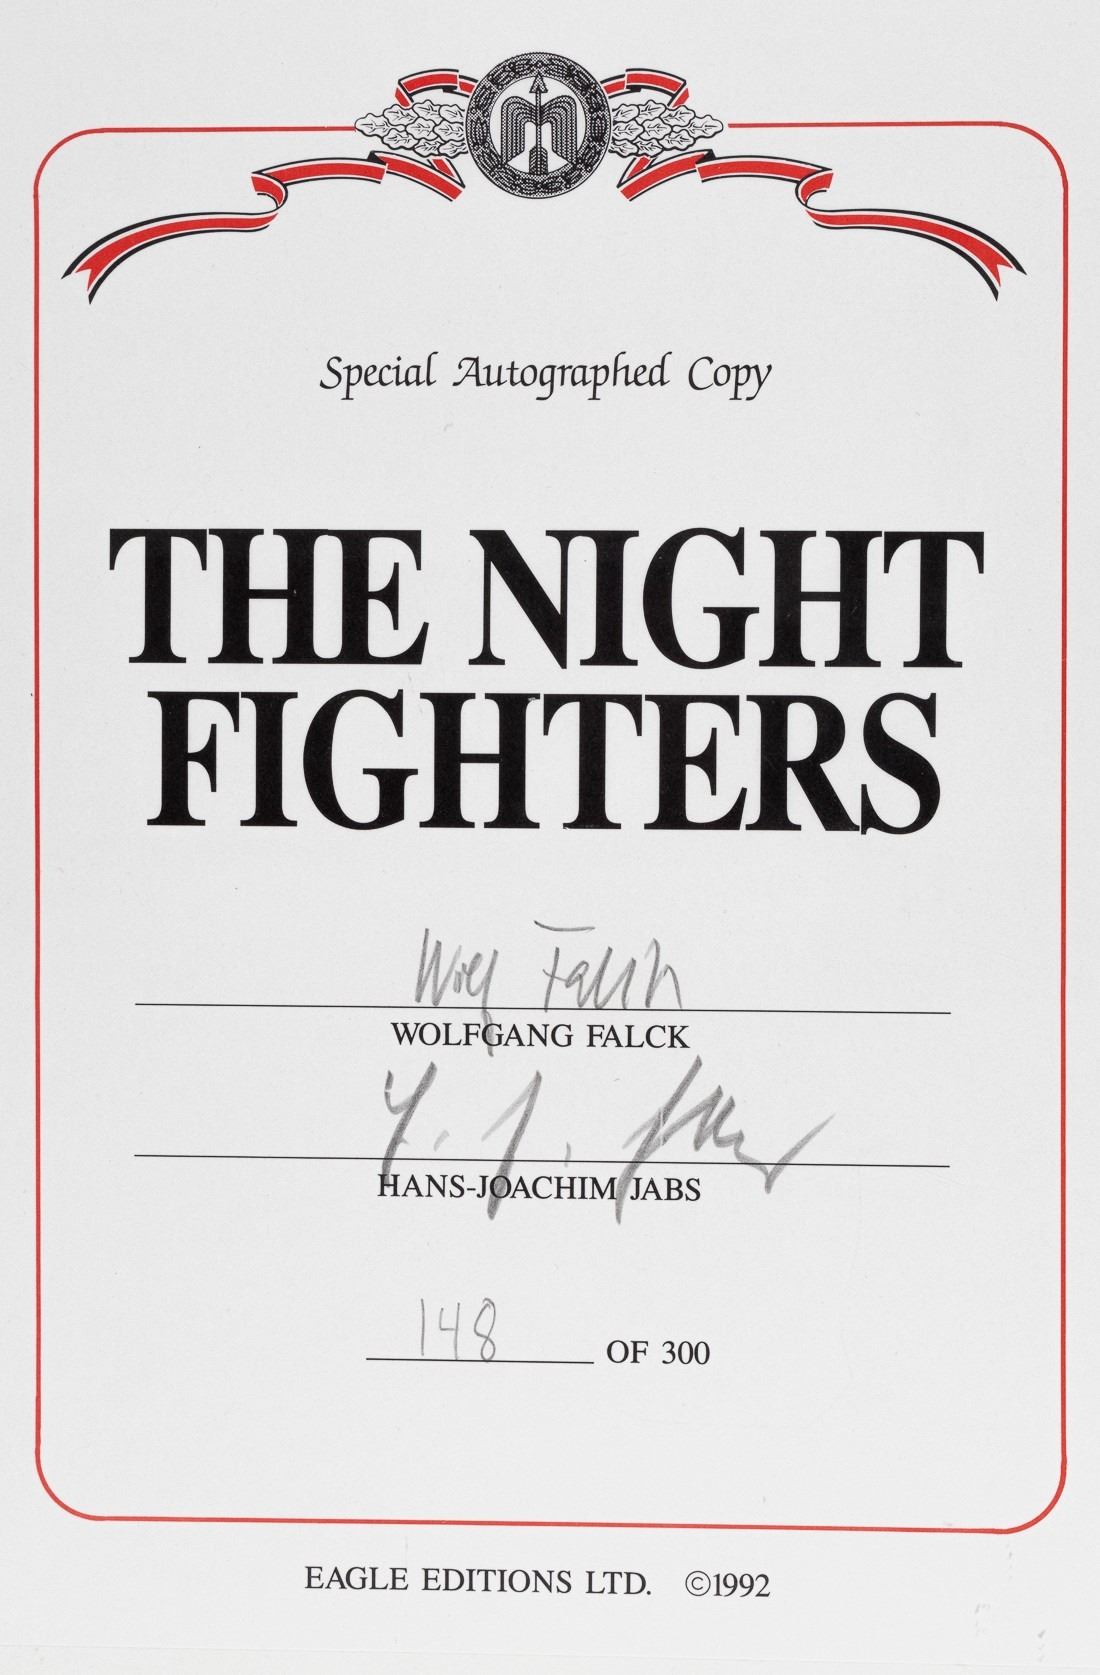 Special Autographed Copy
THE NIGHT
FIGHTERS
Wolf Falck
WOLFGANG FALCK
H. J. Jabs
HANS-JOACHIM JABS
148 OF 300
EAGLE EDITIONS LTD. ©1992